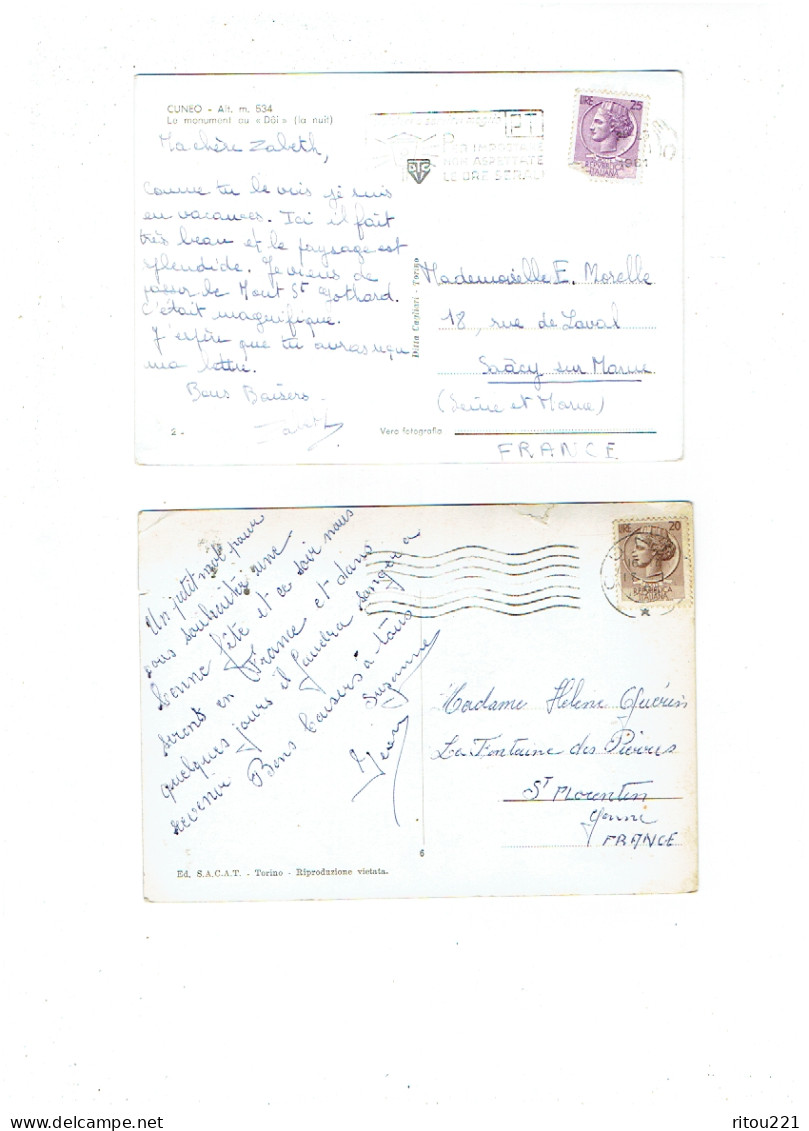 CUNEO - Alt. m. 534
Le monument au « Dôi » (la nuit)
Ma chère Zabeth,
Comme tu le vois je suis
en vacances. Ici il fait
très beau et le paysage est
splendide. Je viens de
passer le Mont St Gothard.
C'était magnifique.
J'espère que tu auras reçu
ma lettre.
Bons Baisers
Zabeth
2 -
Vera fotografia
Ditta Cagliari - Torino
PT
PER IMPOSTARE
NON ASPETTATE
LE ORE SERALI
1961
LIRE 25
REPUBBLICA
ITALIANA
Mademoiselle E. Morelle
18, rue de Laval
Saâcy sur Marne
(Seine et Marne)
FRANCE
Un petit mot pour
vous souhaiter une
bonne fête et ce soir nous
serons en France et dans
quelques jours il faudra songer à
revenir Bons baisers à tous
Suzanne
Jean
Ed. S.A.C.A.T. - Torino - Riproduzione vietata.
6
LIRE 20
REPUBBLICA
ITALIANA
Madame Hélène Guérin
La Fontaine des
St Florentin
Yonne
FRANCE
delcampe.net
ritou221